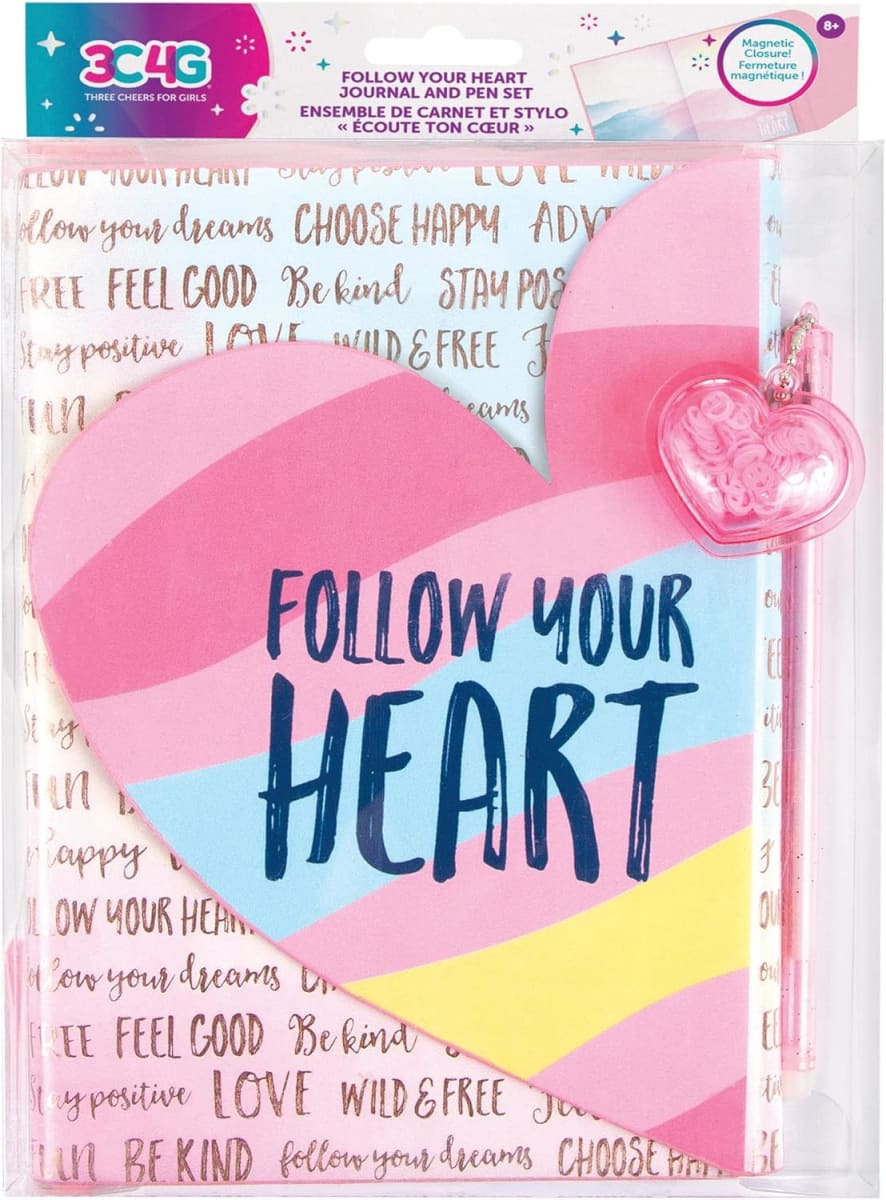 3C4G
THREE CHEERS FOR GIRLS
FOLLOW YOUR HEART
JOURNAL AND PEN SET
ENSEMBLE DE CARNET ET STYLO
« ÉCOUTE TON CŒUR »
8+
Magnetic
Closure!
Fermeture
magnétique !
HEART
YOUR HEART Stay positive LOVE WILD
follow your dreams CHOOSE HAPPY
FREE FEEL GOOD Be kind STAY
Stay positive LOVE WILD & FREE
FUN
FOLLOW YOUR
HEART
Stay
FUN
happy
FOLLOW YOUR HEART
follow your dreams
FREE FEEL GOOD Be kind
Stay positive LOVE WILD & FREE
FUN BE KIND follow your dreams CHOOSE